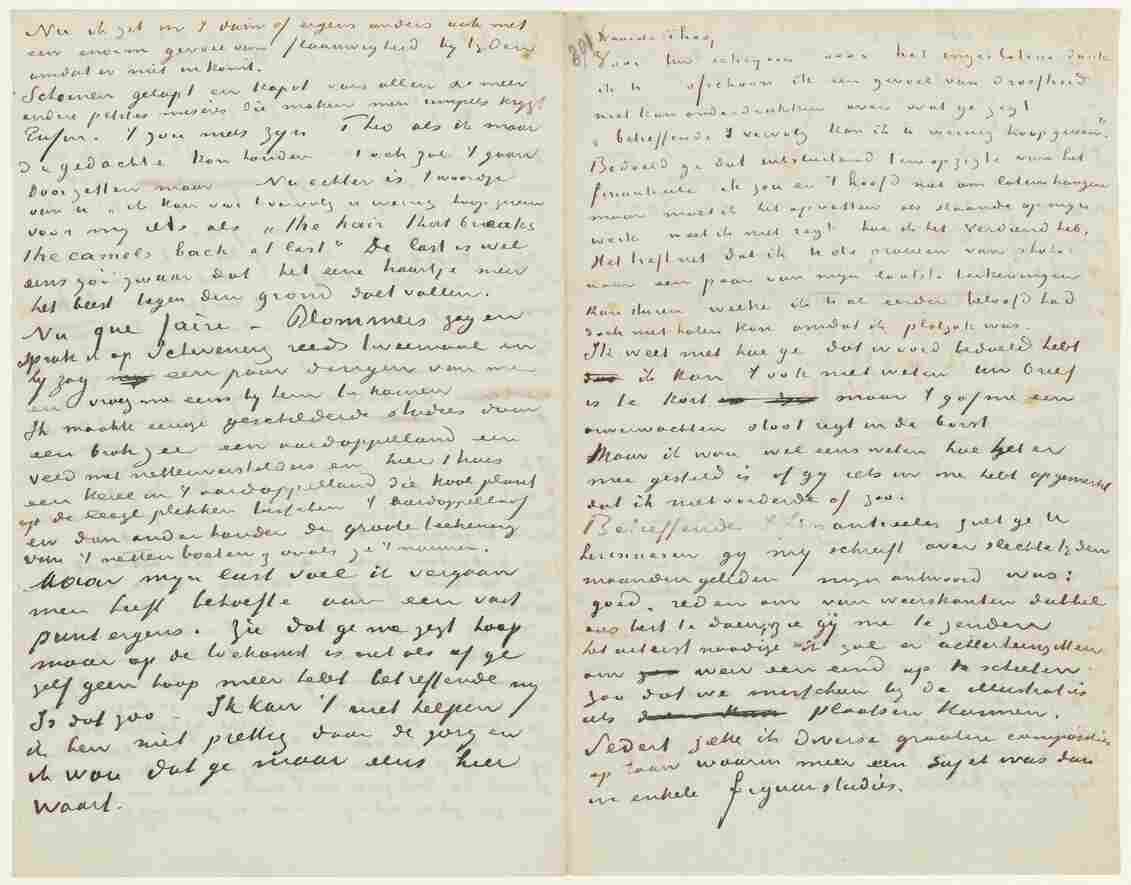 Nu ik zat in 't duin of ergens anders ook met
een enorm gevoel van flaauwigheid bij tijden
omdat er niet inkomt.
Schoenen gelapt en kapot voor allen en meer
andere petites misères die maken men rimpels krijgt
Enfin. 't zou niets zijn Theo als ik maar
de gedachte kon houden 't ook zal 't gaan
doorzetten maar Nu echter is 't woordje
van u „ik kan voor 't vervolg u weinig hoop geven
voor mij iets als „the hair that breaks
the camels back at last" De last is wel
eens zoo zwaar dat het eene haartje meer
het beest tegen den grond doet vallen.
Nu que faire – Blommers zag en
sprak ik op Schevening reeds tweemaal en
hij zag een paar dingen van me
en vroeg me eens bij hem te komen
Ik maakte eenige geschilderde studies daar
een brok zee een aardappelland een
veld met nettenverstelsters en hier t huis
een kerel in 't aardappelland die kool plant
op de leege plekken tusschen 't aardappelloof
en dan onder handen de groote teekening
van 't netten boeten zooals ze 't noemen.
Maar mijn lust voel ik vergaan
men heeft behoefte aan een vast
punt ergens. Zie dat ge me zegt hoop
maar op de toekomst is net als of ge
zelf geen hoop meer hebt betreffende mij
Is dat zoo – Ik kan 't niet helpen
ik ben niet prettig door de zorg en
ik wou dat ge maar eens hier
waart.
301
Waarde Theo,
Voor Uw schrijven voor het ingeslotene dank
ik U ofschoon ik een gevoel van droefheid
niet kan onderdrukken over wat ge zegt
„betreffende 't vervolg kan ik U weinig hoop geven".
Bedoeld ge dat uitsluitend ten opzigte van het
financieele ik zou er 't hoofd niet om laten hangen
maar moet ik het opvatten als slaande op mijn
werk weet ik niet regt hoe ik het verdiend heb.
Het treft net dat ik U de proeven van photos
naar een paar van mijn laatste teekeningen
kan sturen welke ik U al eerder beloofd had
doch niet halen kon omdat ik platzak was.
Ik weet niet hoe ge dat woord bedoeld hebt
ik kan 't ook niet weten uw brief
is te kort maar 't gaf me een
onverwachten stoot regt in de borst.
Maar ik wou wel eens weten hoe het er
mee gesteld is of gij iets in me hebt opgemerkt
dat ik niet vorderde of zoo.
Betreffende 't financieele zult ge U
herinneren gij mij schreeft over slechte tijden
maanden geleden mijn antwoord was:
goed, reden om van weerskanten dubbel
ons best te doen, zie gij me te zenden
het uiterst noodige ik zal er achterheen zitten
om weer een eind op te schieten
zoo dat we misschien bij de illustraties
als plaatsen kunnen.
Sedert zette ik diverse grootere composities
op touw waarin meer een sujet was dan
in enkele figuurstudies.